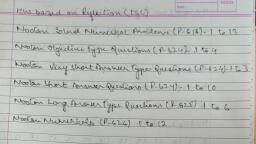 H/w based on Reflection (L&C)
Nootan Solved Numerical Problems (P-618)- 1 to 13
Nootan Objective Type Questions (P-624)- 1 to 4
Nootan Very Short Answer Type Questions (P-624)- 1 to
Nootan Short Answer Questions (P-624)- 1 to 10
Nootan Long Answer Type Questions (P-625) 1 to 6
Nootan Numericals (P-626) 1 to 12